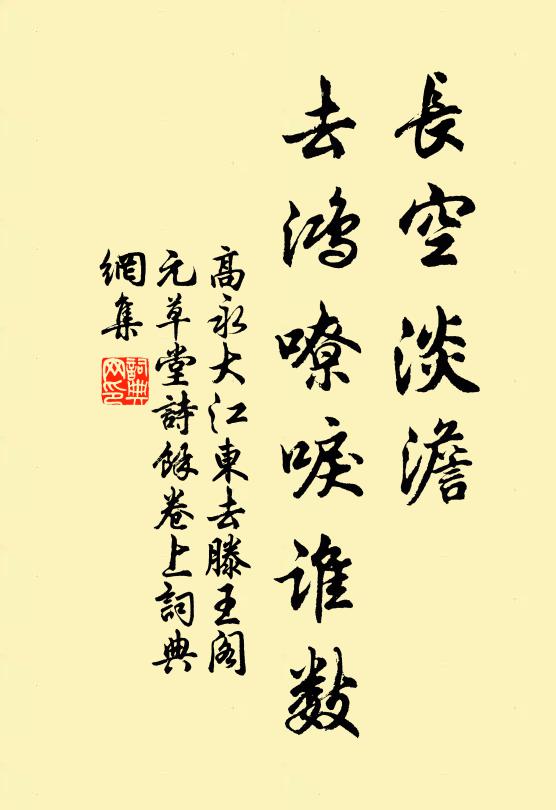 長空淡澹
去鴻嘹唳誰數
高永大江東去滕王阁
元草堂詩餘卷上詞典
網集
詞典
网印